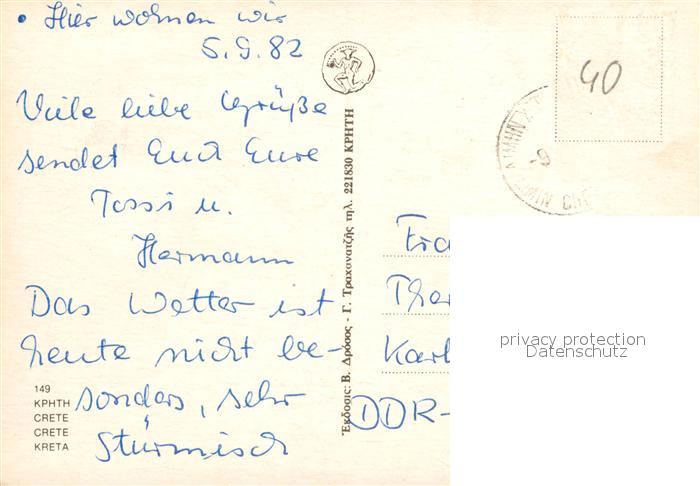 • Hier wohnen wir
5.9.82
Viele liebe Grüße
sendet Euch Eure
Tossi u.
Hermann
Das Wetter ist
heute nicht be-
sonders, sehr
stürmisch
149
ΚΡΗΤΗ
CRETE
CRETE
KRETA
Ἔκδοσις: Β. Δρόσος - Γ. Τραχανατζῆς τηλ. 221830 ΚΡΗΤΗ
40
-9
Fra
Ther
Karl
DDR-
privacy protection
Datenschutz